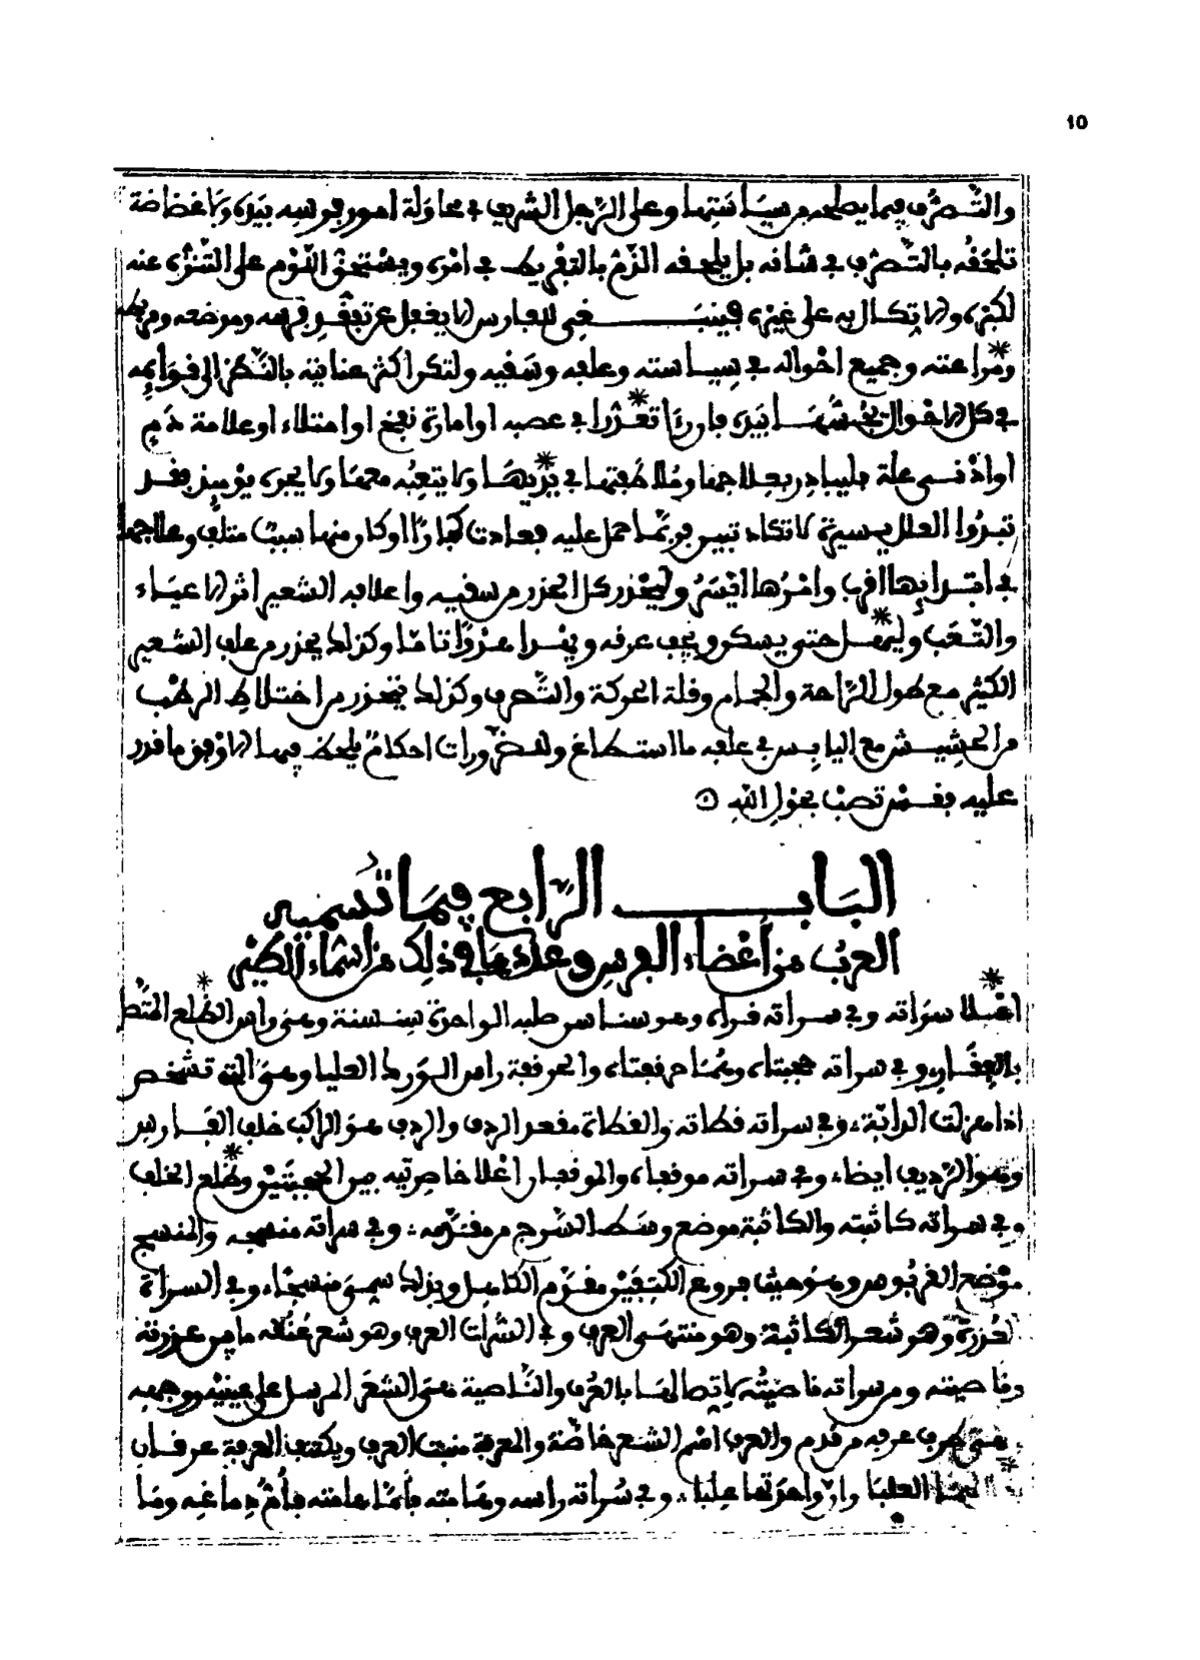 10
والتصرف فيما يصلحه من سياستها وعلى الرجل الشريف في محاولة امور فرسه بيده ولا غضاضة
تلحقه بالتصرف في شانه بل يلحقه الذم بالتفريط في امره ويستحق اللوم على التنزه عنه
لكبره والاتكال به على غيره فينبغي للفارس الا يغفل عن تفقد فرسه وموضعه ومربطه
ومراعته وجميع احواله في سياسته وعلفه وسقيه ولتكن اكثر عنايته بالنظر الى قوايمه
في كل الاحوال يجسها بيده فان راى تعقدا في عصبه او امارة نفخ او امتلاء او علامة دم
او اذى علة فليبادر بعلاجها وملاطفتها في بدئها ولا يتعبه معها ولا يجره يوميذ فقد
تبدوا العلل يسيرة لا تكاد تبين فربما حمل عليه فعادت كبارا وكان منها سبب متلف وعلاجها
في ابتدايها اقرب وامرها ايسر وليحذر كل الحذر من سقيه واعلافه الشعير اثر الاعياء
والتعب وليمهل حتى يسكن ويجف عرقه ويهدا هدوا تاما وكذلك يحذر من علف الشعير
الكثير مع طول الراحة والجمام وقلة الحركة والتصرف وكذلك يتحذر من اختلاط الرطب
من الحشيش مع اليابس في علفه ما استطاع وللضرورات احكام يلحظ فيها الاوفق ما قدر
عليه فقس تصب بحول الله
البـاب الرابع فيما تسميه
العرب من أعضاء الفرس وعددها في ذلك من اسماء الطير
اعلا سراته وفي سراته قراه وهو سناسن صلبه الواحدة سنسنة وهي راس الضلع المتصل
بالفقار وفي سراته حجبتاه وهما حرقفتاه والحرقفة راس الورك العليا وهي التي تشخص
اذا هزلت الدابة، وفي سراته قطاته والقطاة مقعد الردف والردف هو الراكب خلف الفارس
وهو الرديف ايضا، وفي سراته موقفاه والموقفان اعلا خاصرتيه بين الحجبتين وضلع الخلف
وفي سراته كاثبته والكاثبة موضع وسط السرج من مقدمه، وفي سراته منسجه والمنسج
موضع القربوس وهو حيث فروع الكتفين مقدم الكاهل وبذلك سمي منسجا، وفي السراة
العذرة وهو شعر الكاثبة وهو منتهى العرف وفي الشرات العرف وهو شعر عنقه ما بين عذرته
وناصيته ومن سراته ناصيته لاتصالها بالعرف والناصية هي الشعر المرسل على عينيه ووجهه
من طرف عرفه من قدم والعرف اسم الشعر خاصة والعرفة منبت العرف ويكتنف العرفة عرفان
لهما العلبا وان واحدتهما علبا، وفي سراته راسه وهامته فأما هامته فأم دماغه وما